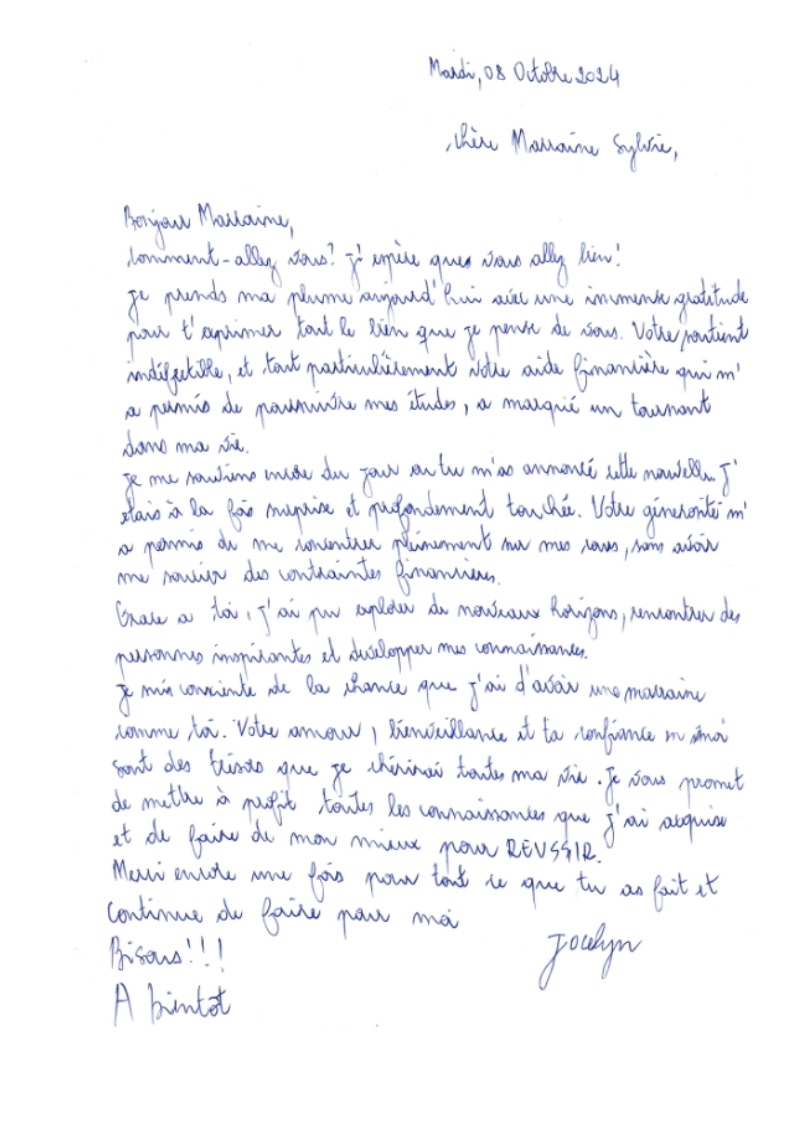 Mardi, 08 Octobre 2024
Chère Marraine Sylvie,
Bonjour Marraine,
Comment-allez vous? J'espère que vous allez bien!
Je prends ma plume aujourd'hui avec une immense gratitude
pour t'exprimer tout le bien que je pense de vous. Votre soutient
indéfectible, et tout particulièrement votre aide financière qui m'
a permis de poursuivre mes études, a marqué un tournant
dans ma vie.
Je me souviens encore du jour ou tu m'as annoncé cette nouvelle. J'
étais à la fois surprise et profondement touchée. Votre générosité m'
a permis de me concentrer pleinement sur mes cours, sans avoir
me soucier des contraintes financières.
Grace a toi, j'ai pu explorer de nouveaux horizons, rencontrer des
personnes inspirantes et developper mes connaissances.
Je suis consciente de la chance que j'ai d'avoir une marraine
comme toi. Votre amour, bienveillance et ta confiance en moi
sont des trésors que je chérirai toutes ma vie. Je vous promet
de mettre à profit toutes les connaissances que j'ai acquise
et de faire de mon mieux pour REUSSIR.
Merci encore une fois pour tout ce que tu as fait et
continue de faire pour moi
Bisous!!!
Jocelyn
A bientôt